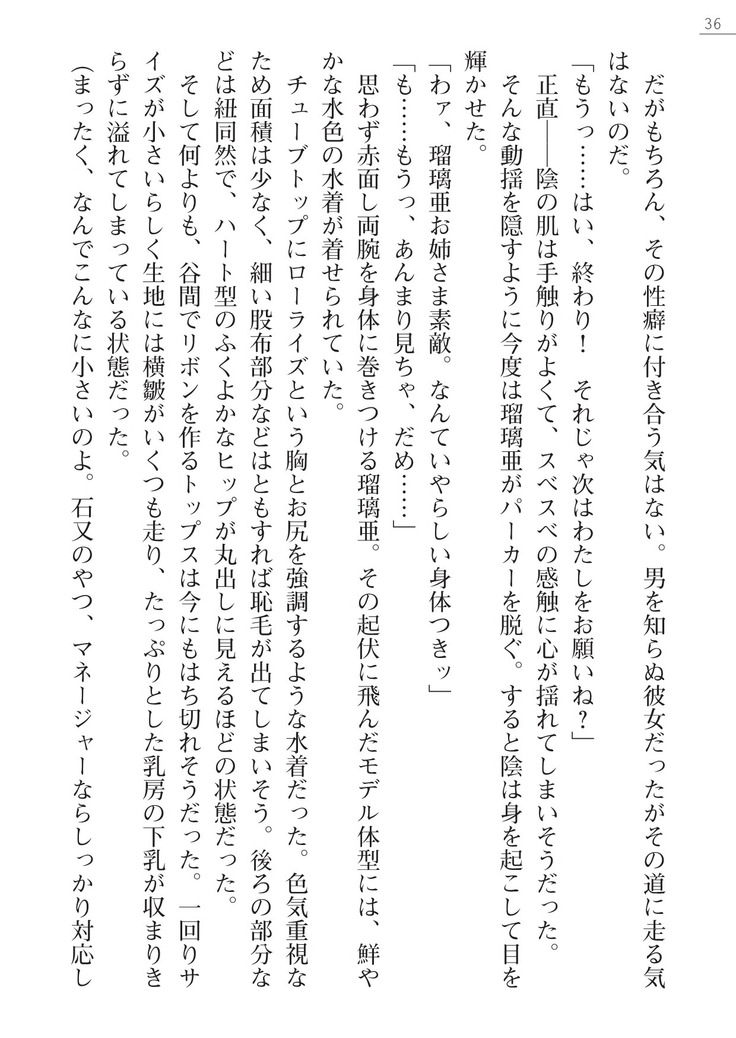 36
だがもちろん、その性癖に付き合う気はない。男を知らぬ彼女だったがその道に走る気
はないのだ。
「もうっ……はい、終わり！　それじゃ次はわたしをお願いね？」
正直――陰の肌は手触りがよくて、スベスベの感触に心が揺れてしまいそうだった。
そんな動揺を隠すように今度は瑠璃亜がパーカーを脱ぐ。すると陰は身を起こして目を
輝かせた。
「わァ、瑠璃亜お姉さま素敵。なんていやらしい身体つきッ」
「も……もうっ、あんまり見ちゃ、だめ……」
思わず赤面し両腕を身体に巻きつける瑠璃亜。その起伏に飛んだモデル体型には、鮮や
かな水色の水着が着せられていた。
チューブトップにローライズという胸とお尻を強調するような水着だった。色気重視な
ため面積は少なく、細い股布部分などはともすれば恥毛が出てしまいそう。後ろの部分な
どは紐同然で、ハート型のふくよかなヒップが丸出しに見えるほどの状態だった。
そして何よりも、谷間でリボンを作るトップスは今にもはち切れそうだった。一回りサ
イズが小さいらしく生地には横皺がいくつも走り、たっぷりとした乳房の下乳が収まりき
らずに溢れてしまっている状態だった。
（まったく、なんでこんなに小さいのよ。石又のやつ、マネージャーならしっかり対応し